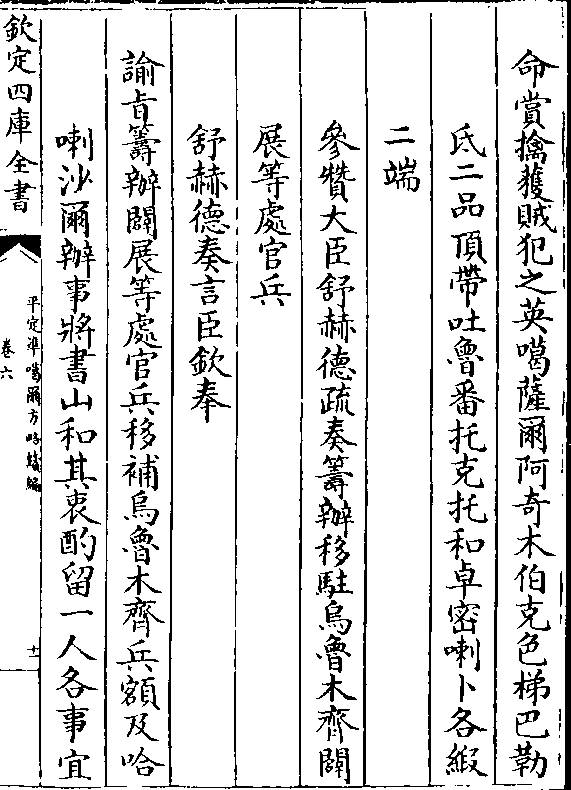 命賞擒獲賊犯之英噶薩爾阿奇木伯克色梯巴勒
氐二品頂帶吐魯番托克托和卓密喇卜各緞
二端
參贊大臣舒赫德疏奏籌辦移駐烏魯木齊闢
展等處官兵
舒赫德奏言臣欽奉
諭旨籌辦闢展等處官兵移補烏魯木齊兵額及哈
喇沙爾辦事將書山和其衷酌留一人各事宜
欽定四庫全書
平定準噶爾方略續編
卷六
十一